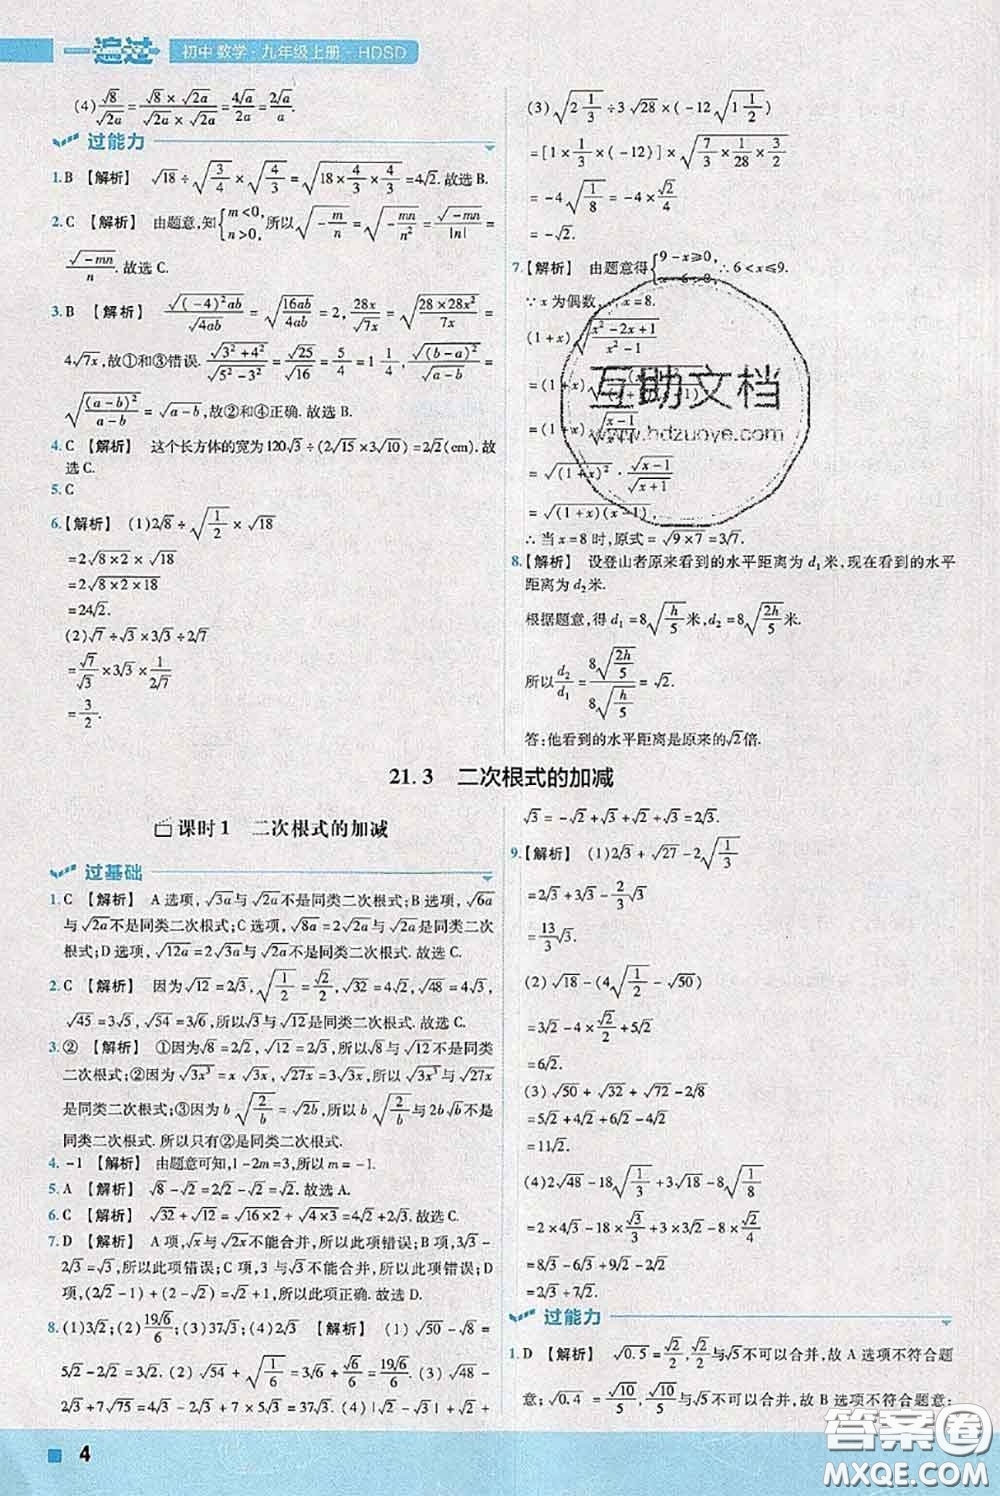 一遍过 初中 数学·九年级上册·HDSD
(4) √8/√(2a) = (√8×√(2a))/(√(2a)×√(2a)) = 4√a/2a = 2√a/a.
过能力
1. B 【解析】 √18÷√(3/4)×√(4/3)=√(18×4/3×4/3)=4√2. 故选 B.
2. C 【解析】 由题意,知{m<0, n>0,所以√(-m/n)=√(-mn/n²)=√(-mn)/|n|
=√(-mn)/n. 故选 C.
3. B 【解析】 √((-4)²ab)/√(4ab)=√(16ab/4ab)=2, 28x/√(7x)=√(28×28x²/7x)=
4√(7x),故①和③错误. √(3²+4²)/√(5²-3²)=√25/√16=5/4=1 1/4, √((b-a)²)/√(a-b)=
√((a-b)²/(a-b))=√(a-b),故②和④正确. 故选 B.
4. C 【解析】 这个长方体的宽为 120√3÷(2√15×3√10)=2√2(cm). 故
选 C.
5. C
6. 【解析】 (1)2√8÷√(1/2)×√18
=2√(8×2)×√18
=2√(8×2×18)
=24√2.
(2)√7÷√3×3√3÷2√7
=√7/√3×3√3×1/(2√7)
=3/2.
(3)√(2 1/3)÷3√28×(-12√(1 1/2))
=[1×1/3×(-12)]×√(7/3×1/28×3/2)
=-4√(1/8)=-4×√2/4
=-√2.
7. 【解析】 由题意得{9-x≥0, x-6>0, ∴6<x≤9.
∵x 为偶数,∴x=8.
(1+x)√((x²-2x+1)/(x²-1))
=√((1+x)²)·√(x-1)/√(x+1)
=√((1+x)(x-1)),
∴当 x=8 时,原式=√(9×7)=3√7.
8. 【解析】 设登山者原来看到的水平距离为 d₁米,现在看到的水平
距离为 d₂米.
根据题意,得 d₁=8√(h/5)米,d₂=8√(2h/5)米.
所以 d₂/d₁=8√(2h/5)/8√(h/5)=√2.
答:他看到的水平距离是原来的√2倍.
21.3 二次根式的加减
课时1 二次根式的加减
过基础
1. C 【解析】 A 选项,√(3a)与√(2a)不是同类二次根式;B 选项,√(6a)
与√(2a)不是同类二次根式;C 选项,√(8a)=2√(2a)与√(2a)是同类二次
根式;D 选项,√(12a)=2√(3a)与√(2a)不是同类二次根式. 故选 C.
2. C 【解析】 因为√12=2√3,√(1/2)=√2/2,√18=3√2,√48=4√3,
√45=3√5,√54=3√6,所以√3与√12是同类二次根式. 故选 C.
3. ② 【解析】 ①因为√8=2√2,√12=2√3,所以√8与√12不是同类
二次根式;②因为√(3x³)=x√(3x),√(27x)=3√(3x),所以√(3x³)与√(27x)
是同类二次根式;③因为 b√(2/b)=√(2b),所以 b√(2/b)与 2b√b不是
同类二次根式. 所以只有②是同类二次根式.
4. -1 【解析】 由题意可知,1-2m=3,所以 m=-1.
5. A 【解析】 √8-√2=2√2-√2=√2. 故选 A.
6. C 【解析】 √32+√12=√(16×2)+√(4×3)=4√2+2√3. 故选 C.
7. D 【解析】 A 项,√x与√(2x)不能合并,所以此项错误;B 项,3√2-
2√2=√2,所以此项错误;C 项,3 与√3不能合并,所以此项错误;D
项,(2√2-√2)+(2-√2)=2,所以此项正确. 故选 D.
8. (1)3√2;(2)19√6/6;(3)37√3;(4)2√3 【解析】 (1)√50-√8=
5√2-2√2=3√2. (2)√54+√(1/6)=3√6+√6/6=19√6/6. (3)√12+
7√75=2√3+35√3=37√3. (4)|√2-√3|+√2+
√3=-√2+√3+√2+√3=2√3.
9. 【解析】 (1)2√3+√27-2√(1/3)
=2√3+3√3-2/3√3
=13/3√3.
(2)√18-(4√(1/2)-√50)
=3√2-4×√2/2+5√2
=6√2.
(3)√50+√32+√72-2√8
=5√2+4√2+6√2-4√2
=11√2.
(4)2√48-18√(1/3)+3√12-9√(1/2)
=8√3-6√3+6√3-9√2/2
过能力
1. D 【解析】 √0.5=√2/2,√2/2与√5不可以合并,故 A 选项不符合题
意;√0.4=√10/5,√10/5与√5不可以合并,故 B 选项不符合题意;
4
互助文档
www.hdzuoye.com
答案圈
MXQE.COM